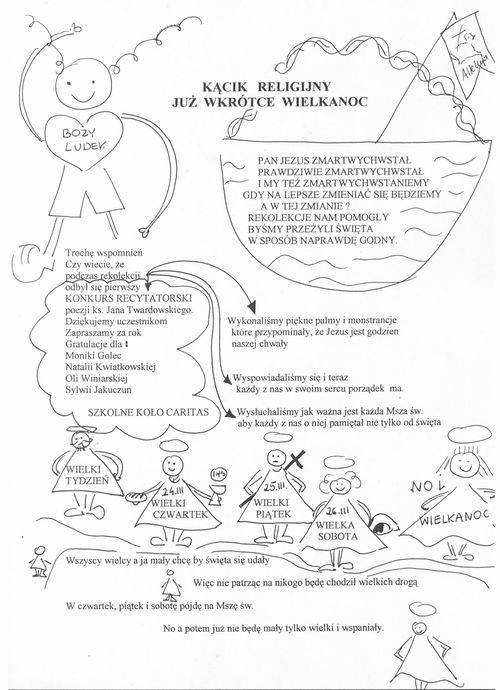 KĄCIK RELIGIJNY
JUŻ WKRÓTCE WIELKANOC
BOŻY
LUDEK
PAN JEZUS ZMARTWYCHWSTAŁ
PRAWDZIWIE ZMARTWYCHWSTAŁ
I MY TEŻ ZMARTWYCHWSTANIEMY
GDY NA LEPSZE ZMIENIAĆ SIĘ BĘDZIEMY
A W TEJ ZMIANIE ?
REKOLEKCJE NAM POMOGŁY
BYŚMY PRZEŻYLI ŚWIĘTA
W SPOSÓB NAPRAWDĘ GODNY.
Trochę wspomnień
Czy wiecie, że
podczas rekolekcji
odbył się pierwszy
KONKURS RECYTATORSKI
poezji ks. Jana Twardowskiego.
Dziękujemy uczestnikom
Zapraszamy za rok
Gratulacje dla :
Moniki Golec
Natalii Kwiatkowskiej
Oli Winiarskiej
Sylwii Jakuczun
SZKOLNE KOŁO CARITAS
Wykonaliśmy piękne palmy i monstrancje
które przypominały, że Jezus jest godzien
naszej chwały
Wyspowiadaliśmy się i teraz
każdy z nas w swoim sercu porządek ma.
Wysłuchaliśmy jak ważna jest każda Msza św.
aby każdy z nas o niej pamiętał nie tylko od święta
WIELKI
TYDZIEŃ
24.III
WIELKI
CZWARTEK
IHS
25.III
WIELKI
PIĄTEK
26.III
WIELKA
SOBOTA
WIELKANOC
Wszyscy wielcy a ja mały chcę by święta się udały
Więc nie patrząc na nikogo będę chodził wielkich drogą
W czwartek, piątek i sobotę pójdę na Mszę św.
No a potem już nie będę mały tylko wielki i wspaniały.